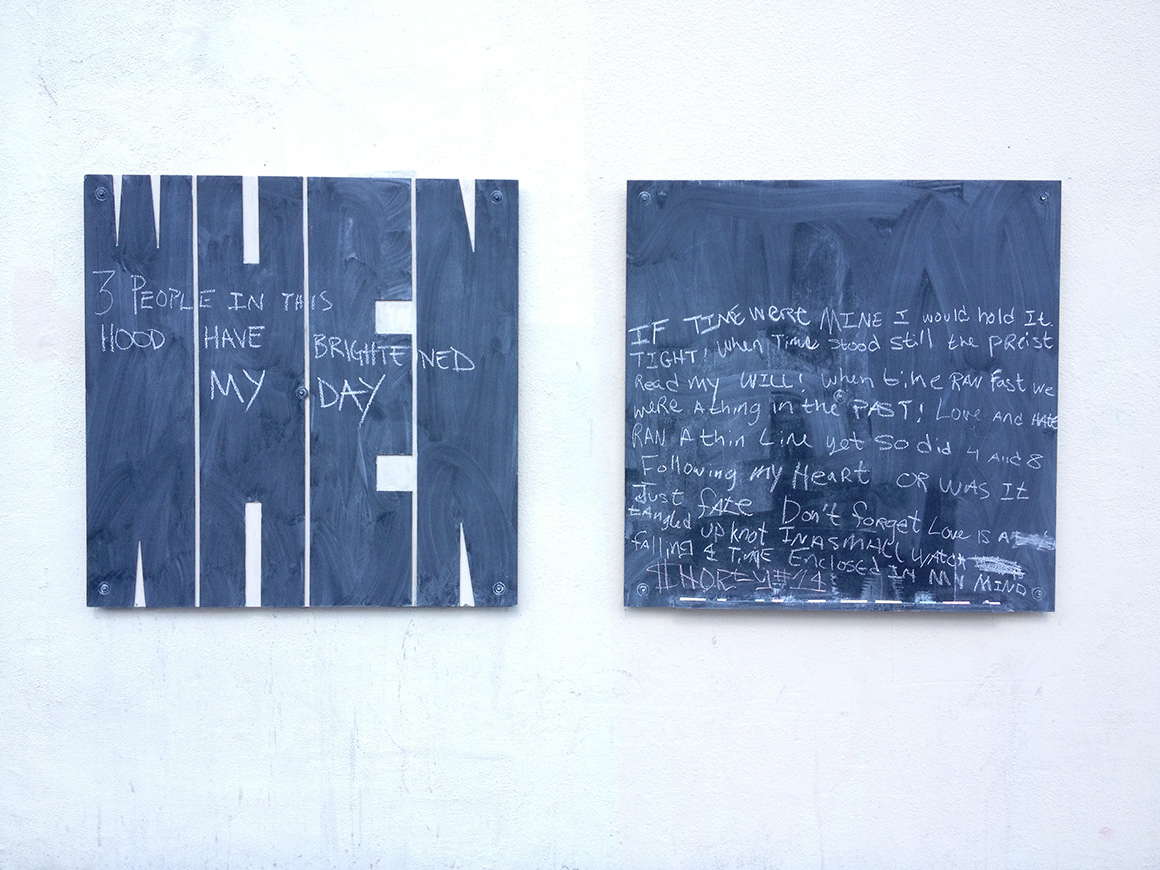 WHEN
3 PEOPLE IN THIS
HOOD HAVE BRIGHTENED
MY DAY
IF TIME were MINE I would hold It
TIGHT! When Time stood still the preist
Read my WILL! When time RAN Fast we
were A thing in the PAST! Love And HATE
RAN A thin Line yet so did 4 And 8
Following my Heart OR WAS It
Just fate Don't forget Love is A
tangled up knot IN A SMALL WATCH
falling & Time Enclosed IN MY MIND